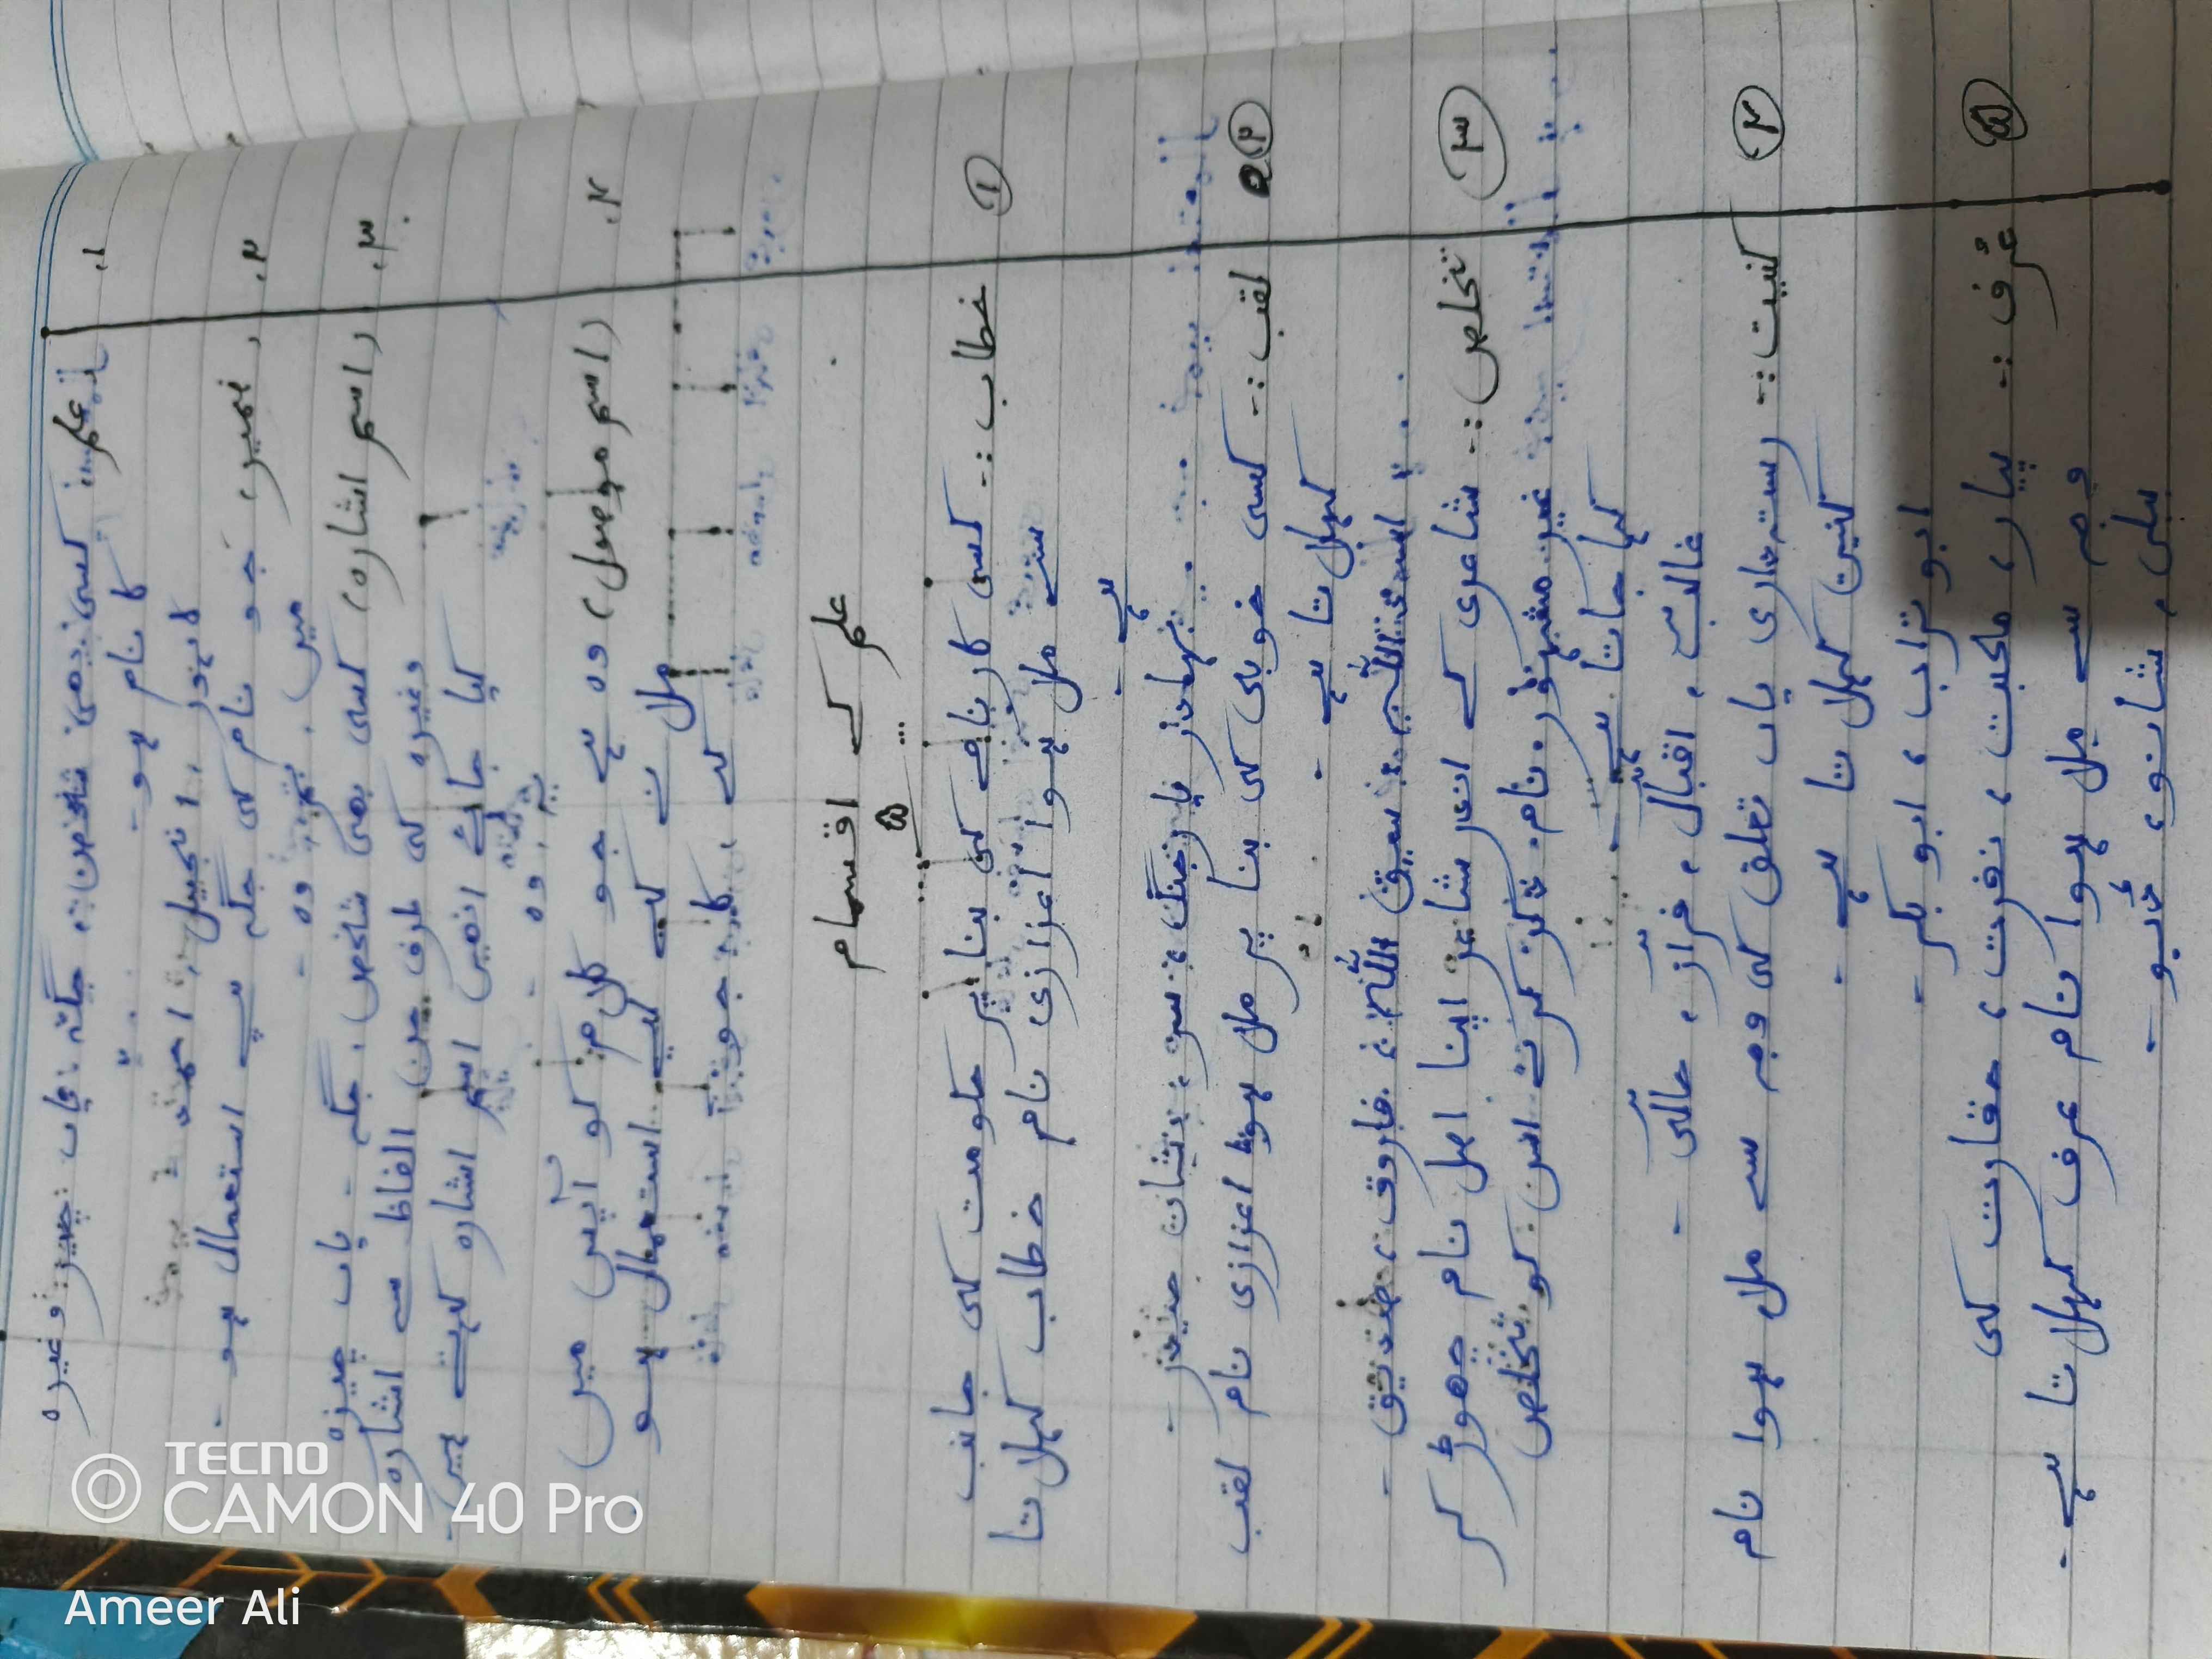 ۱. (علم) کسی بھی شخص، جگہ یاں چیز وغیرہ
کا نام ہو۔
لاہور، انجیل، احمد
۲. (ضمیر) جو نام کی جگہ پے استعمال ہو۔
میں، تم، وہ۔
۳. (اسم اشارہ) کسی بھی شخص، جگہ۔ یاں چیزہ
وغیرہ کی طرف جن الفاظ سے اشارہ
کیا جائے انھیں اسم اشارہ کہتے ہیں۔
یہ، وہ۔
۴. (اسم موصول) وہ ہے جو کلام کو آپس میں
ملا نے کے لیے استعمال ہو
کے، کا، جو
علم کے اقسام
۵
۱ خطاب :۔ کسی کارنامے کی بنا پر حکومت کی جانب
سے ملا ہوا اعزازی نام خطاب کہلا تا
ہے۔
بہادر یار جنگ، سر، نشان حیدر۔
۲ لقب :۔ کسی خوبی کی بنا پر ملا ہوا اعزازی نام لقب
کہلا تا ہے۔
اسد اللہ، سیف اللہ، فاروق، صدیق۔
۳ تخلص :۔ شاعری کے اندر شاعر اپنا اصل نام چھوڑ کر
غیر مشہور نام ذکر کرئے اس کو تخلص
کہا جاتا ہے۔
غالب، اقبال، فراز، حالی۔
۴ کنیت :۔ رستہ داری یاں تعلق کی وجہ سے ملا ہوا نام
کنیت کہلا تا ہے۔
ابو تراب، ابو بکر۔
۵ عُرف :۔ پیار، محبت، نفرت، حقارت کی
وجہ سے ملا ہوا نام عرف کہلا تا ہے۔
ببلی، شانو،
TECNO
CAMON 40 Pro
Ameer Ali